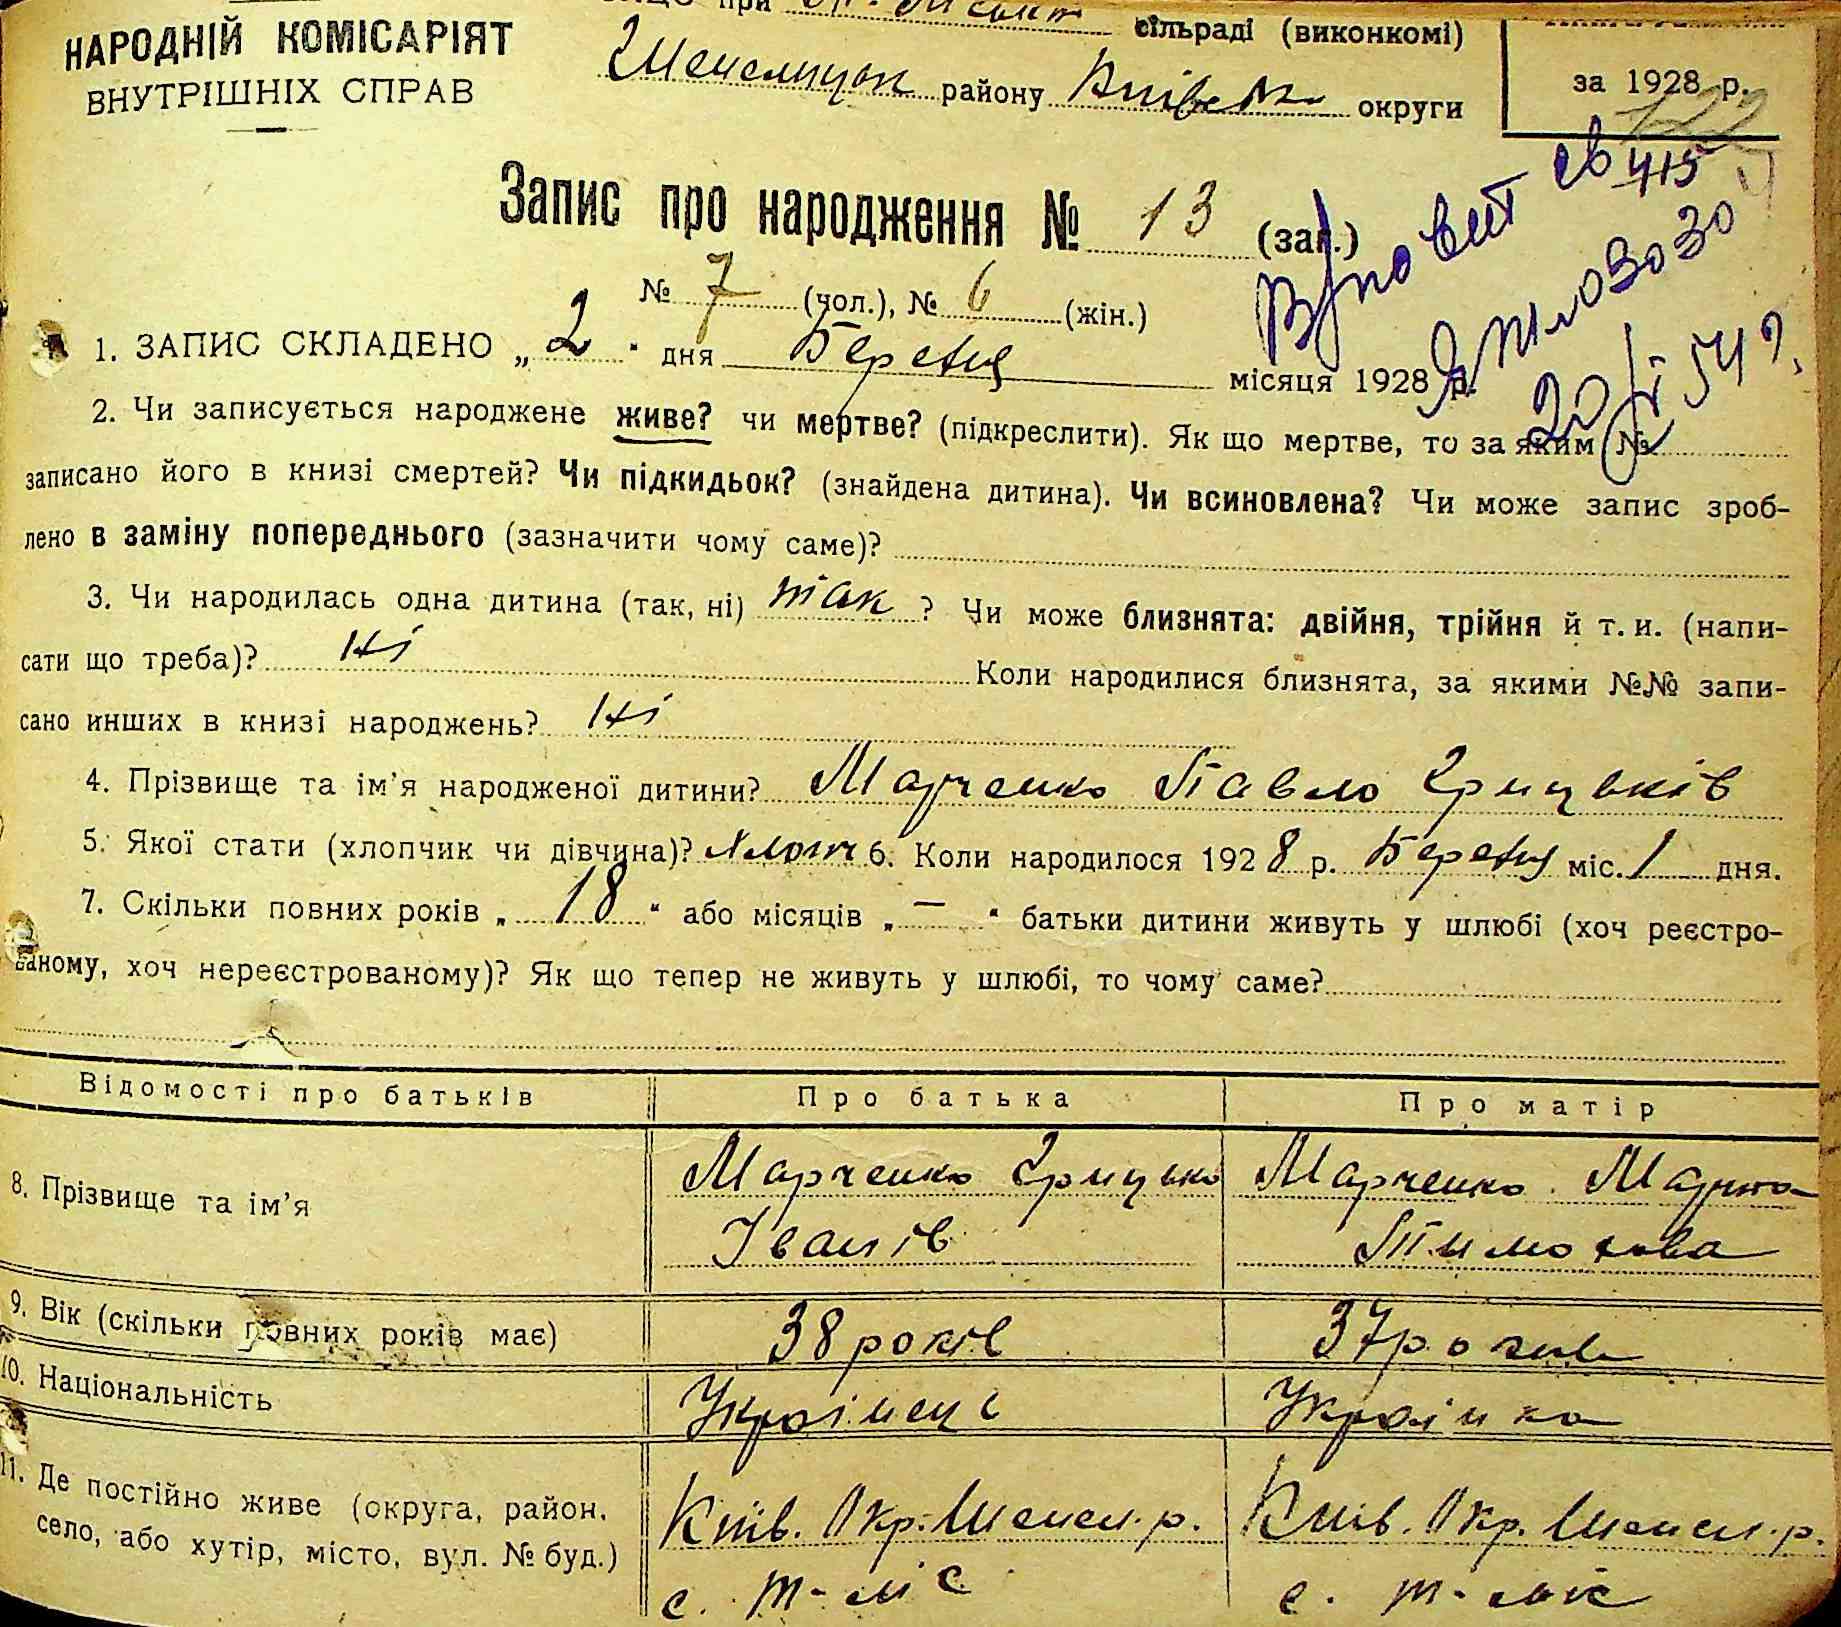 НАРОДНІЙ КОМІСАРІЯТ
ВНУТРІШНІХ СПРАВ
при сільраді (виконкомі)
району округи
за 1928 р.
122
Запис про народження № 13 (заг.)
415
№ 7 (чол.), № 6 (жін.)
1. ЗАПИС СКЛАДЕНО „ 2 “ дня Березня місяця 1928 р.
2. Чи записується народжене живе? чи мертве? (підкреслити). Як що мертве, то за яким №
записано його в книзі смертей? Чи підкидьок? (знайдена дитина). Чи всиновлена? Чи може запис зроб-
лено в заміну попереднього (зазначити чому саме)?
3. Чи народилась одна дитина (так, ні) так ? Чи може близнята: двійня, трійня й т. и. (напи-
сати що треба)? Ні Коли народилися близнята, за якими №№ запи-
сано инших в книзі народжень? Ні
4. Прізвище та ім’я народженої дитини? Марченко Павло Грицьків
5. Якої стати (хлопчик чи дівчина)? 6. Коли народилося 1928 р. Березня міс. 1 дня.
7. Скільки повних років „ 18 “ або місяців „ — “ батьки дитини живуть у шлюбі (хоч реєстро-
ваному, хоч нереєстрованому)? Як що тепер не живуть у шлюбі, то чому саме?
Відомості про батьків Про батька Про матір
8. Прізвище та ім’я Марченко Грицько Марченко
Іванів Тимохова
9. Вік (скільки повних років має) 38 років 37
10. Національність Українець Українка
11. Де постійно живе (округа, район, Київ. Окр. Шемел. р. Київ. Окр. Шемел. р.
село, або хутір, місто, вул. № буд.) с. Т-ліс с. Т-ліс